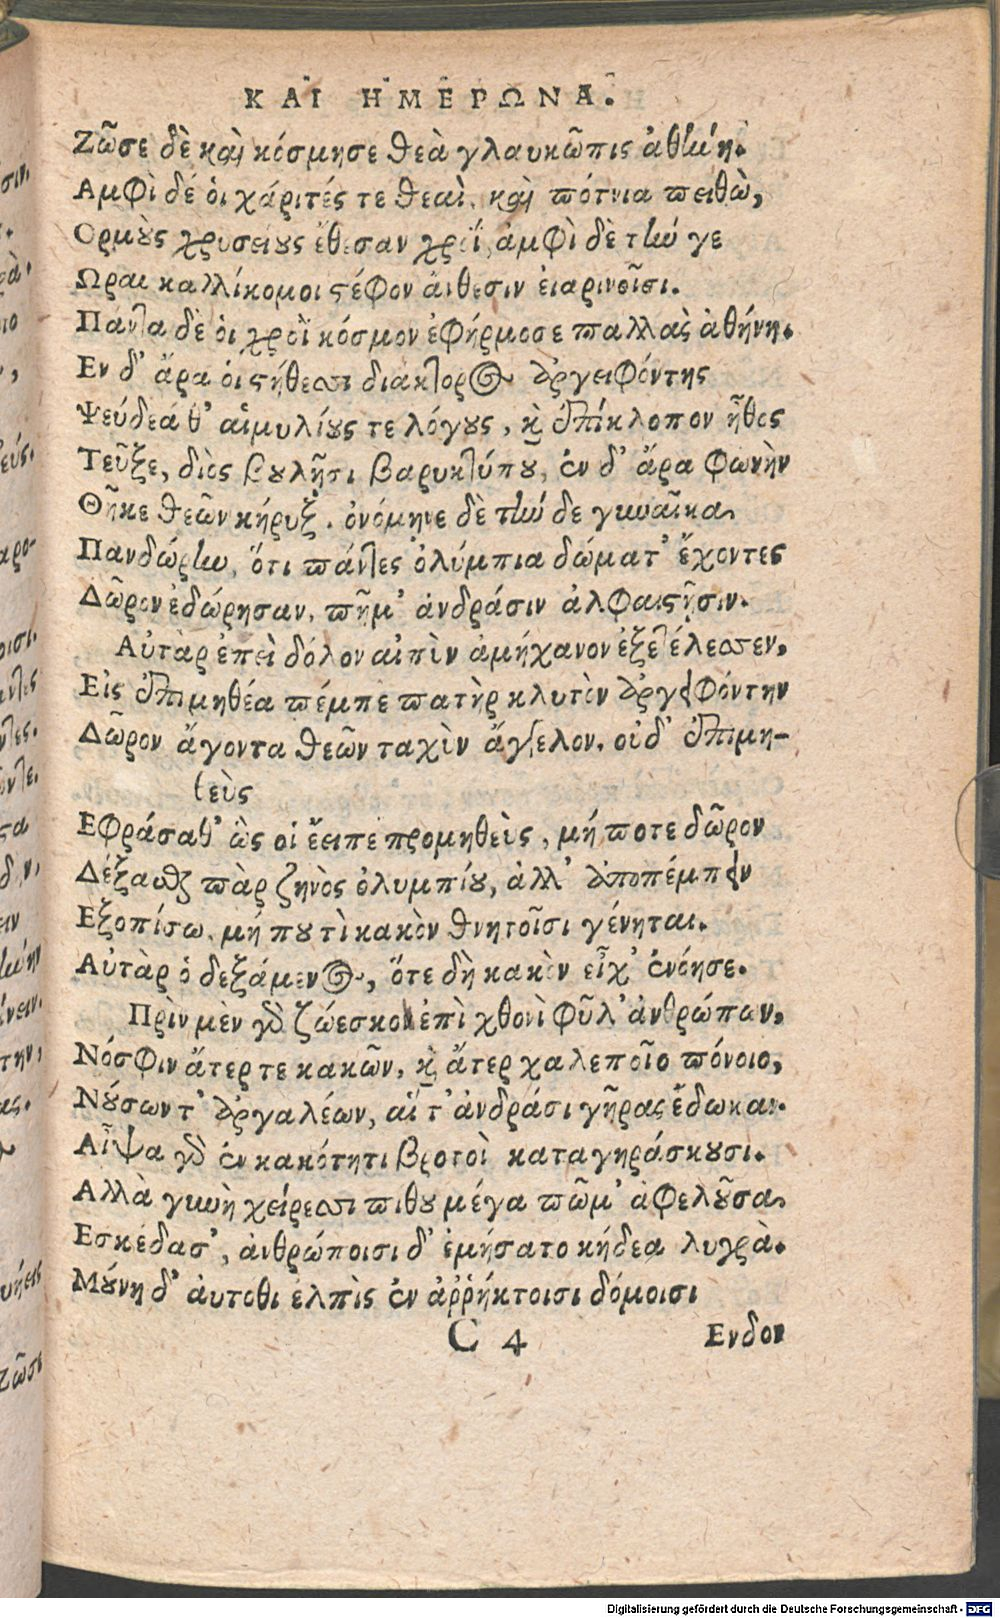 ΚΑΙ ΗΜΕΡΩΝ Α.
Ζῶσε δὲ καὶ κόσμησε θεὰ γλαυκῶπις ἀθήνη.
Αμφὶ δέ ὁι χάριτές τε θεαὶ, καὶ πότνια πειθὼ,
Ορμοὺς χρυσείους ἔθεσαν χροΐ, ἀμφὶ δὲ τήν γε
Ωραι καλλίκομοι στέφον ἄνθεσιν ἐιαρινοῖσι.
Πάντα δὲ ὁι χροῒ κόσμον ἐφήρμοσε παλλὰς ἀθήνη.
Εν δ' ἄρα ὁι στήθεσσι διάκτορος ἀργειφόντης
Ψεύδεα θ' αἱμυλίους τε λόγους, καὶ ἐπίκλοπον ἦθος
Τεῦξε, διὸς βουλῆσι βαρυκτύπου, ἐν δ' ἄρα φωνὴν
Θῆκε θεῶν κήρυξ. ὀνόμηνε δὲ τήν δε γυναῖκα
Πανδώρην, ὅτι πάντες ὀλύμπια δώματ' ἔχοντες
Δῶρον ἐδώρησαν, πῆμ' ἀνδράσιν ἀλφαιστῇσιν.
Αὐτὰρ ἐπεὶ δόλον αἰπὺν ἀμήχανον ἐξετέλεσσεν,
Εἰς ἐπιμηθέα πέμπε πατὴρ κλυτὸν ἀργειφόντην
Δῶρον ἄγοντα θεῶν ταχὺν ἄγγελον, οὐδ' ἐπιμη-
θεὺς
Εφράσαθ' ὣς οἱ ἔειπε προμηθεὺς, μή ποτε δῶρον
Δέξασθαι πὰρ ζηνὸς ὀλυμπίου, ἀλλ' ἀποπέμπειν
Εξοπίσω, μή που τὶ κακὸν θνητοῖσι γένηται.
Αὐτὰρ ὁ δεξάμενος, ὅτε δὴ κακὸν εἶχ' ἐνόησε.
Πρὶν μὲν γὰρ ζώεσκον ἐπὶ χθονὶ φῦλ' ἀνθρώπων,
Νόσφιν ἄτερ τε κακῶν, καὶ ἄτερ χαλεποῖο πόνοιο,
Νούσων τ' ἀργαλέων, αἵ τ' ἀνδράσι γῆρας ἔδωκαν.
Αἶψα γὰρ ἐν κακότητι βροτοὶ καταγηράσκουσι.
Αλλὰ γυνὴ χείρεσσι πίθου μέγα πῶμ' ἀφελοῦσα
Εσκέδασ', ἀνθρώποισι δ' ἐμήσατο κήδεα λυγρὰ.
Μούνη δ' ἀυτόθι ἐλπὶς ἐν ἀῤῥήκτοισι δόμοισι
C 4 Ενδον
Digitalisierung gefördert durch die Deutsche Forschungsgemeinschaft - DFG